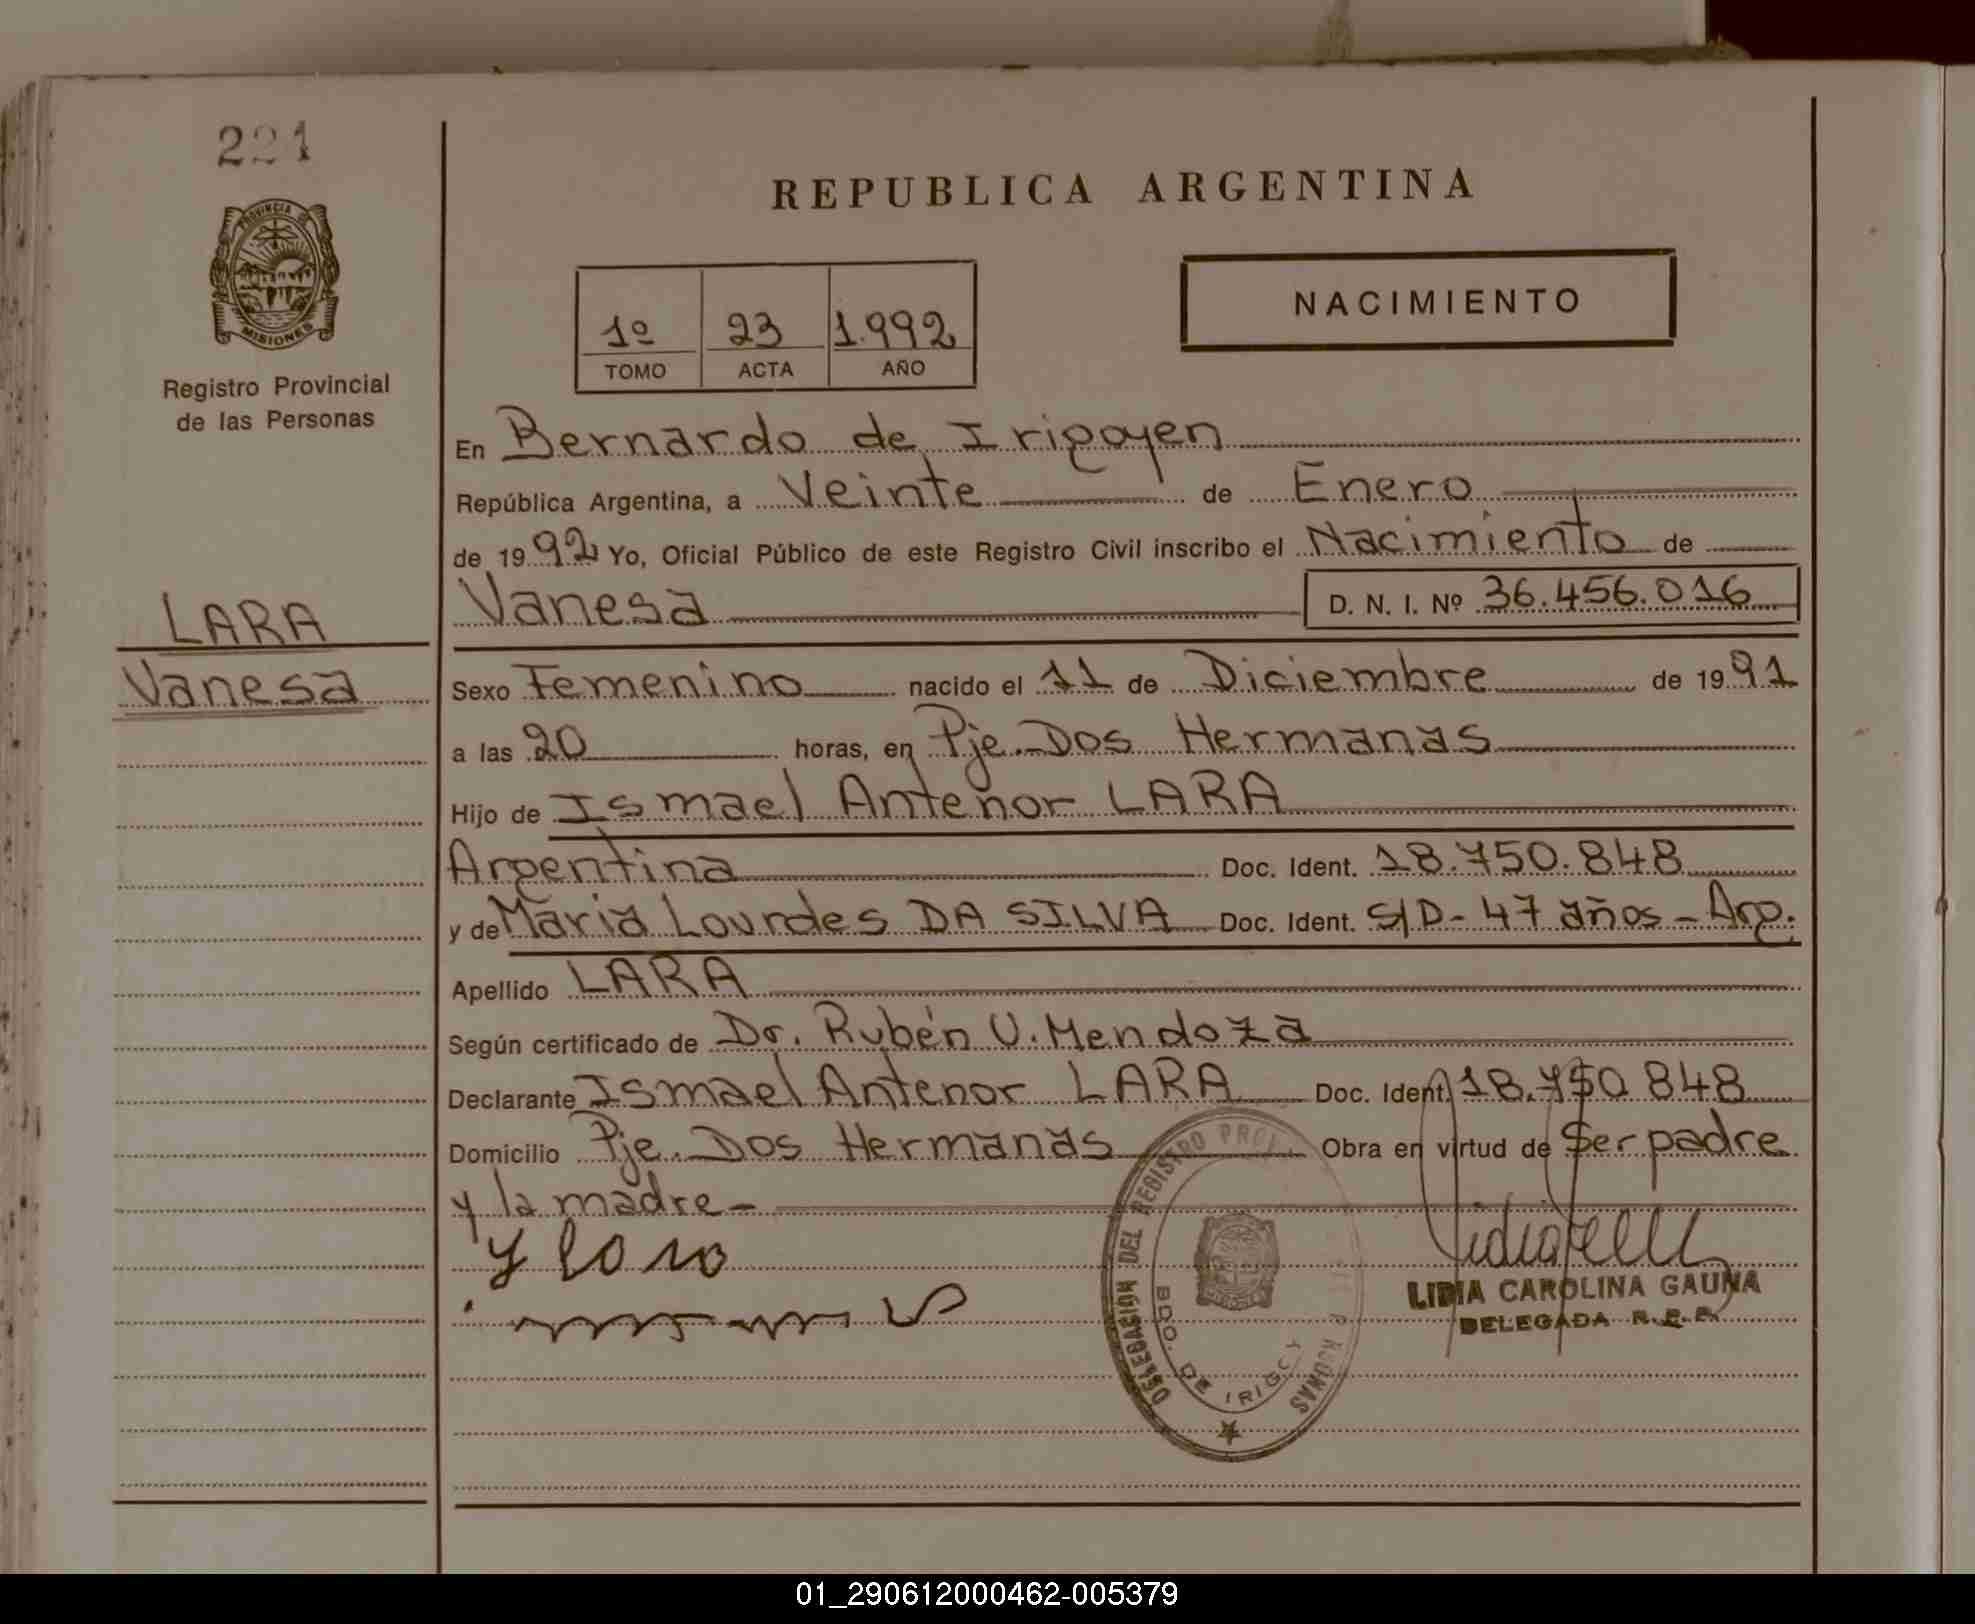 221
PROVINCIA DE
MISIONES
Registro Provincial
de las Personas
LARA
Vanesa
REPUBLICA ARGENTINA
1º 23 1.992
TOMO ACTA AÑO
NACIMIENTO
En Bernardo de Irigoyen
República Argentina, a Veinte de Enero
de 1992 Yo, Oficial Público de este Registro Civil inscribo el Nacimiento de
Vanesa D. N. I. Nº 36.456.016
Sexo Femenino nacido el 11 de Diciembre de 1991
a las 20 horas, en Pje. Dos Hermanas
Hijo de Ismael Antenor LARA
Argentina Doc. Ident. 18.750.848
y de Maria Lourdes DA SILVA Doc. Ident. S/D - 47 años - Arg.
Apellido LARA
Según certificado de Dr. Rubén V. Mendoza
Declarante Ismael Antenor LARA Doc. Ident. 18.750 848
Domicilio Pje. Dos Hermanas Obra en virtud de Ser padre
y la madre -
LIDIA CAROLINA GAUNA
DELEGADA R. P. P.
DELEGACION DEL REGISTRO
BDO. DE IRIGOY
01_290612000462-005379